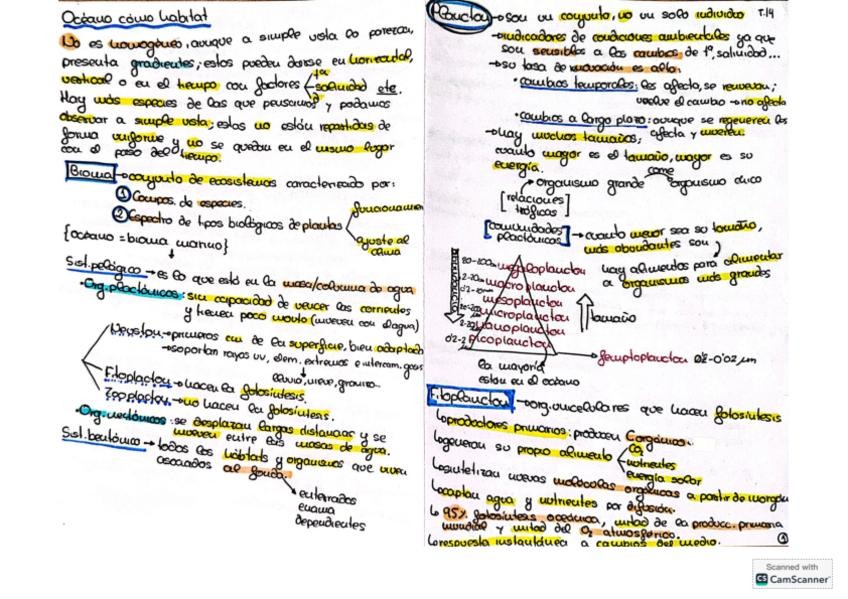 Océano cómo habitat
No es homogéneo, aunque a simple vista lo parezca,
presenta gradientes; estos pueden darse en horizontal,
vertical o en el tiempo con factores tª salinidad etc.
Hay más especies de las que pensamos y podamos
observar a simple vista; estas no están repartidas de
forma uniforme y no se quedan en el mismo lugar
con el paso del tiempo.
Bioma → conjunto de ecosistemas caracterizado por:
① Compos. de especies.
② Espectro de tipos biológicos de plantas
funcionamien
ajuste al clima
{océano = bioma marino}
Sist. pelágico → es lo que está en la masa/columna de agua
• Org. planctónicos: sin capacidad de vencer las corrientes
y tienen poco movto (mueven con el agua)
Neuston → primeros cm de la superficie, bien adaptad
→ soportan rayos uv, elem. extremos e intercam. gases
lluvia, nieve, granizo...
Fitoplacton → hacen la fotosíntesis.
Zooplacton → no hacen la fotosíntesis.
• Org. nectónicos: se desplazan largas distancias y se
mueven entre las masas de agua.
Sist. bentónico → todos los hábitats y organismos que viven
asociados al fondo.
enterrados
encima
dependientes
Plancton → son un conjunto, no un solo individuo T.14
→ indicadores de condiciones ambientales ya que
son sensibles a los cambios de tª, salinidad...
→ su tasa de renovación es alta:
• cambios temporales: les afecta, se renuevan;
vuelve el cambio → no afecta
• cambios a largo plazo: aunque se regeneren les
afecta y mueren.
→ hay muchos tamaños;
cuanto mayor es el tamaño, mayor es su
energía.
→ organismo grande come organismo chico
[relaciones
tróficas]
[comunidades
planctónicas] → cuanto menor sea su tamaño,
más abundantes son
hay alimentos para alimentar
a organismos más grandes
megaloplancton
macroplancton
mesoplancton
microplancton
nanoplancton
0'2-2 picoplancton
tamaño
→ femptoplancton 0'2-0'02 µm
la mayoría
están en el océano
Fitoplancton → org. unicelulares que hacen fotosíntesis
↳ productores primarios: producen C orgánico.
↳ generan su propio alimento CO₂
nutrientes
energía solar
↳ sintetizan nuevas moléculas orgánicas a partir de inorgán
↳ captan agua y nutrientes por difusión.
↳ 95% fotosíntesis oceánica, mitad de la producc. primaria
mundial y mitad del O₂ atmosférico.
↳ respuesta instantánea a cambios del medio.
①
Scanned with
CS CamScanner